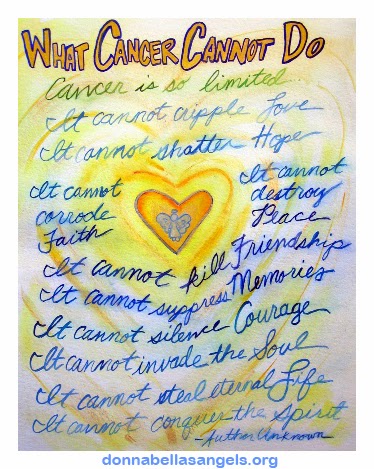 What Cancer Cannot Do
Cancer is so limited...
It cannot cripple Love
It cannot shatter Hope
It cannot
corrode
Faith
It cannot
destroy
Peace
It cannot kill Friendship
It cannot suppress Memories
It cannot silence Courage
It cannot invade the Soul
It cannot steal eternal Life
It cannot conquer the Spirit
-Author Unknown
donnabellasangels.org